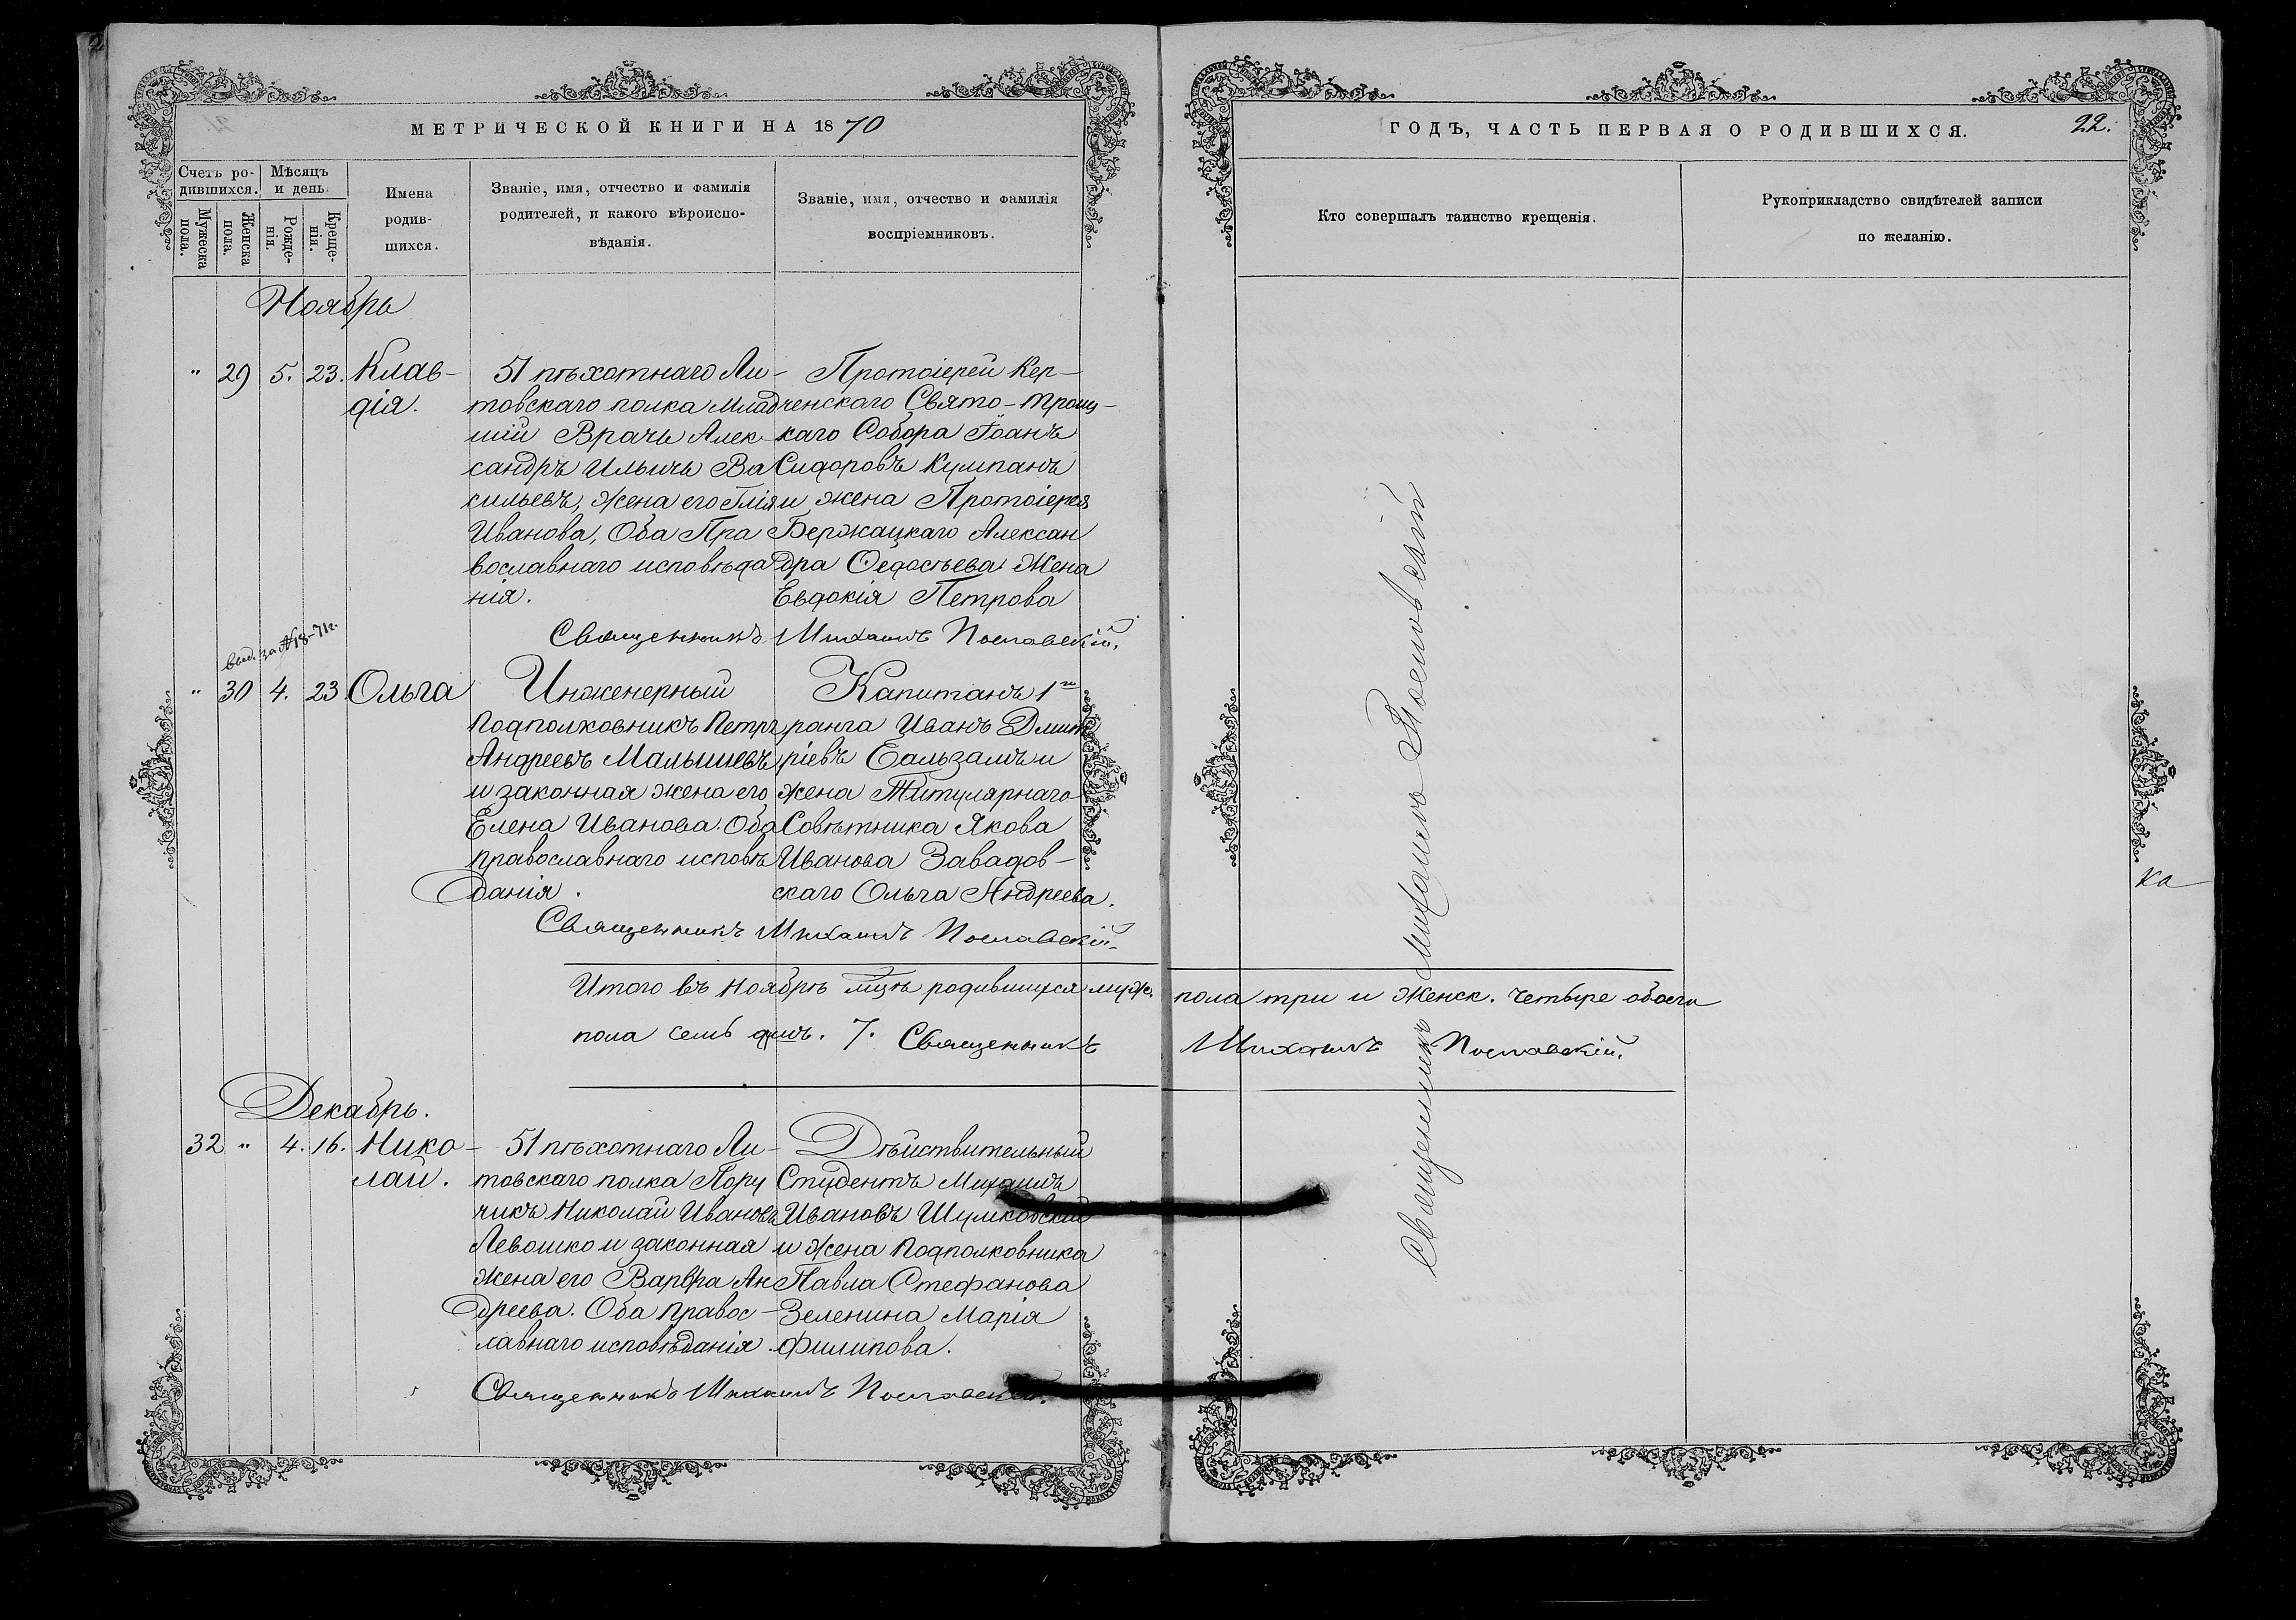 МЕТРИЧЕСКОЙ КНИГИ НА 1870
ГОДЪ, ЧАСТЬ ПЕРВАЯ О РОДИВШИХСЯ.
22.
Счетъ ро-
дившихся.
Мѣсяцъ
и день.
Мужеска
пола.
Женска
пола.
Рожде-
нія.
Креще-
нія.
Имена
родив-
шихся.
Званіе, имя, отчество и фамилія
родителей, и какого вѣроиспо-
вѣданія.
Званіе, имя, отчество и фамилія
воспріемниковъ.
Кто совершалъ таинство крещенія.
Рукоприкладство свидѣтелей записи
по желанію.
Ноябрь
" 29 5. 23. Клав-
дія.
51 пѣхотнаго Ли-
товскаго полка Млад
шій Врачъ Алек-
сандръ Ильичъ Ва
сильевъ, жена его
Иванова, Оба Пра
вославнаго исповѣда
нія.
Протоіерей Кер-
ченскаго Свято-Троиц-
каго Собора Іоанъ
Сидоровъ Кумпанъ
и жена Протоіерея
Бержацкаго Алексан
дра Федосѣева Жена
Евдокія Петрова
Священникъ Михаилъ Пославскій.
выд. за № 18-71 г.
" 30 4. 23. Ольга
Инженерный
Подполковникъ Петръ
Андреевъ Малышевъ
и законная жена его
Елена Иванова. Оба
православнаго исповѣ
данія.
Капитанъ 1го
ранга Иванъ Дмит
ріевъ Бальзамъ и
жена Титулярнаго
Совѣтника Якова
Иванова Завадов-
скаго Ольга Андреева.
Священникъ Михаилъ Пославскій.
Итого въ Ноябрѣ мцѣ родившихся муж. пола три и женск. четыре обоего
пола семь душъ. 7. Священникъ Михаилъ Пославскій.
Декабрь.
32 " 4. 16. Нико-
лай.
51 пѣхотнаго Ли-
товскаго полка Пору
чикъ Николай Ивановъ
Левошко и законная
жена его Варвра Ан
дреева. Оба правос-
лавнаго исповѣданія.
Дѣйствительный
Студентъ Михаилъ
Ивановъ Шумковскій
и жена Подполковника
Павла Стефанова
Зеленина Марія
Филипова.
Священникъ Михаилъ Пославскій.
Священникъ Михаилъ Пославскій
ка